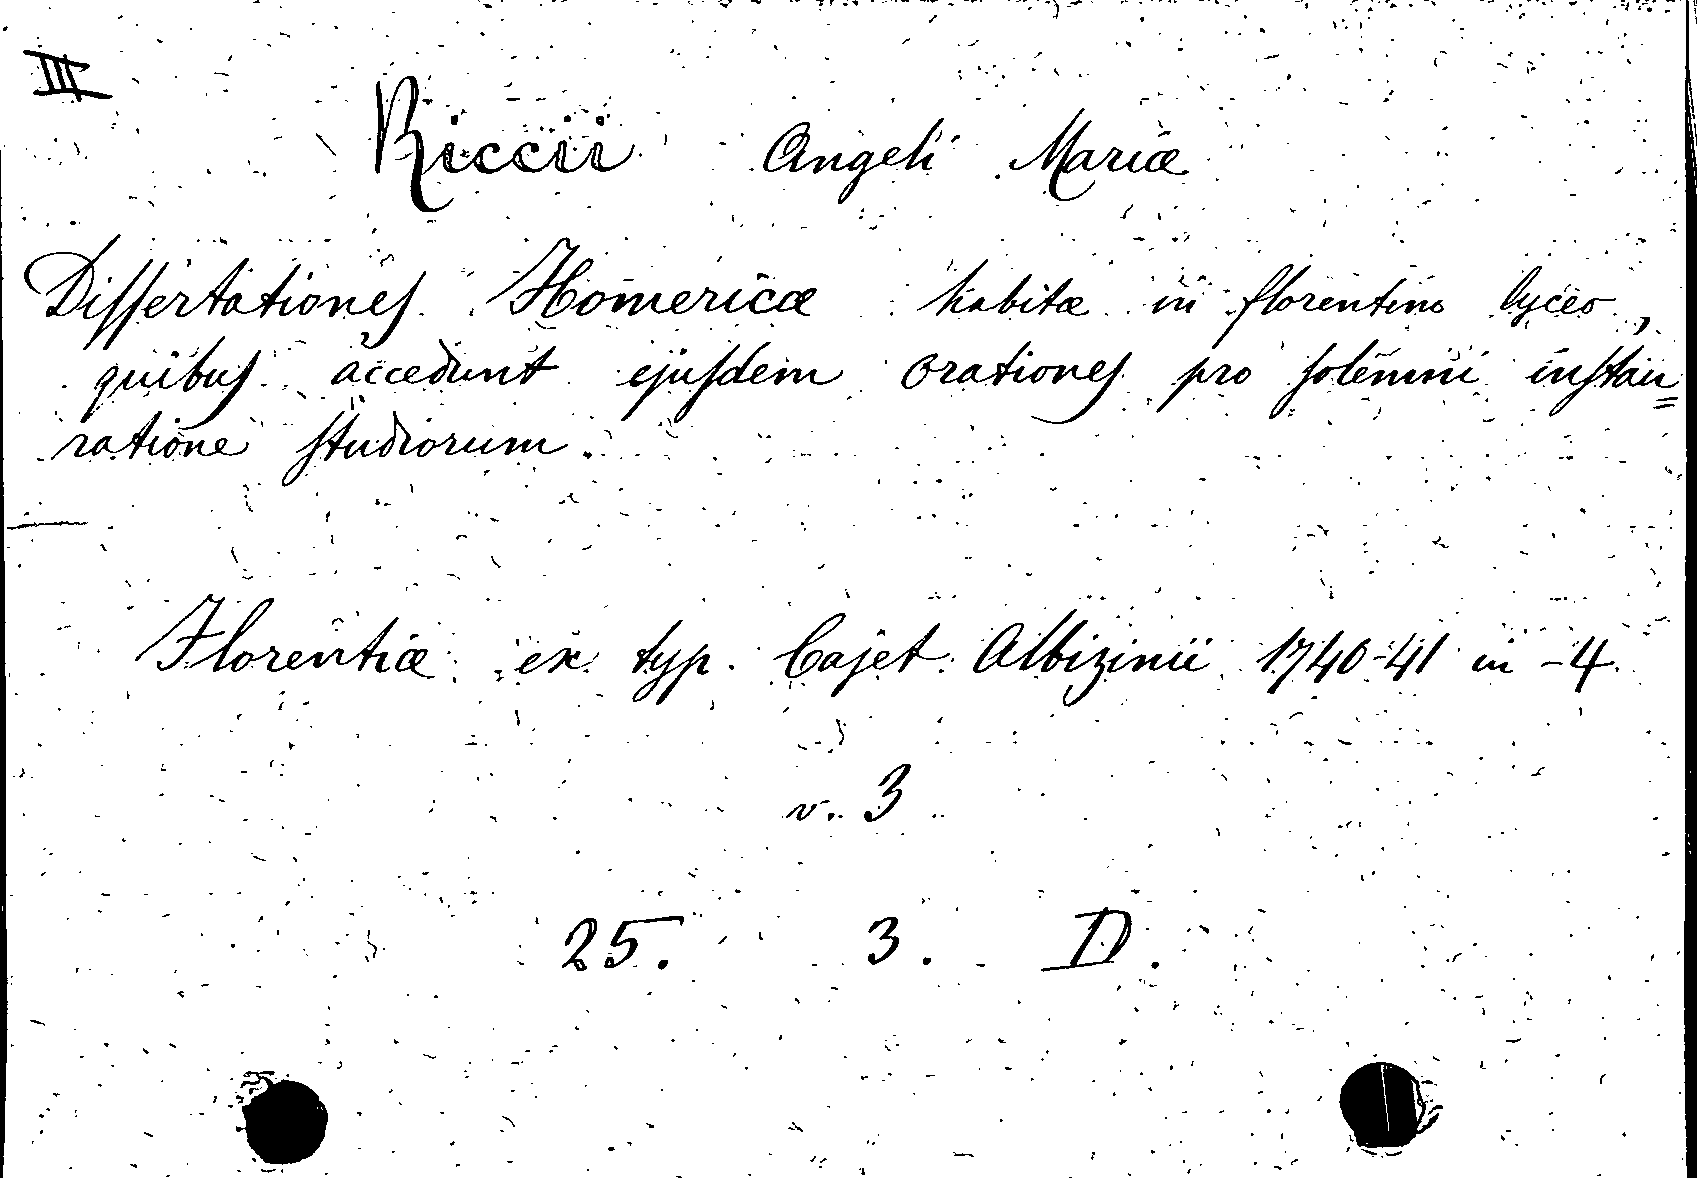 III
Riccii Angeli Mariæ
Dissertationes Homericæ habitæ in florentino lyceo,
quibus accedunt ejusdem orationes pro solemni instau=
ratione studiorum.
Florentiæ ex typ. Cajet. Albizinii 1740-41 in -4.
v. 3
25. 3. D.